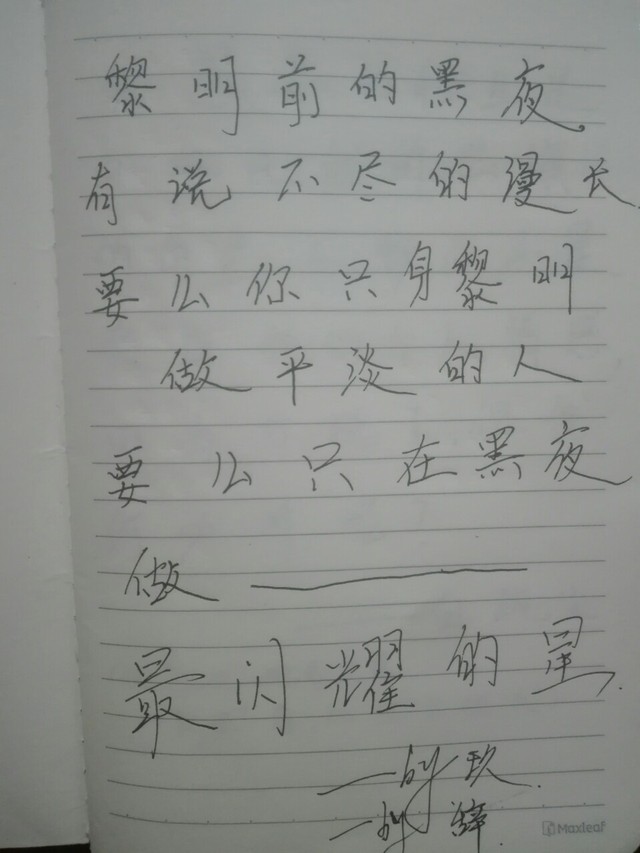 黎明前的黑夜
有说不尽的漫长
要么你只身黎明
做平淡的人
要么只在黑夜
做——
最闪耀的星
玖
辞
Maxleaf